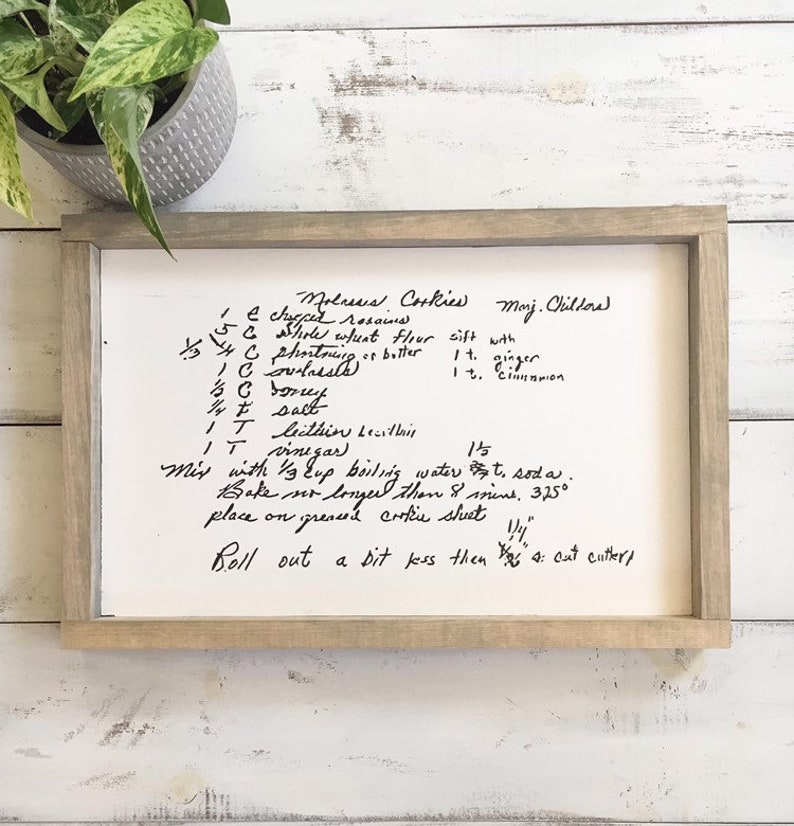 Molasses Cookies Marj. Childers
1 C chopped rasains
5 C whole wheat flour sift with
1/3 1/4 C shortning or butter 1 t. ginger
1 C molasses 1 t. cinnamon
1/2 C honey
1/4 t salt
1 T lecithin Lecithin
1 T vinegar 1 1/2
Mix with 1/3 cup boiling water t. soda.
Bake no longer than 8 mins. 325°
place on greased cookie sheet
1/4"
Roll out a bit less then cut